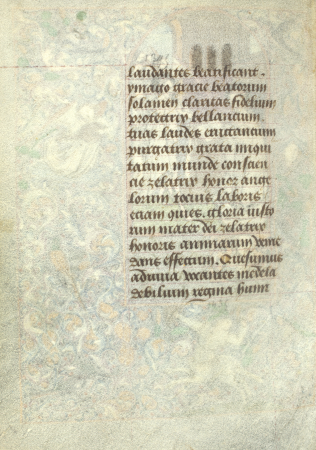 laudantes beatificant.
ymago gracie beatorum
solamen claritas fidelium
protectrix bellancium.
tuas laudes eructancium
purgatrix grata iniqui
tatum munde conscien
cie zelatrix honor ange
lorum tocius laboris
eciam quies. gloria iusto
rum mater dei zelatrix
honoris animarum
dans effectum. Quesumus
adiuua vocantes medela
debilium regina humi